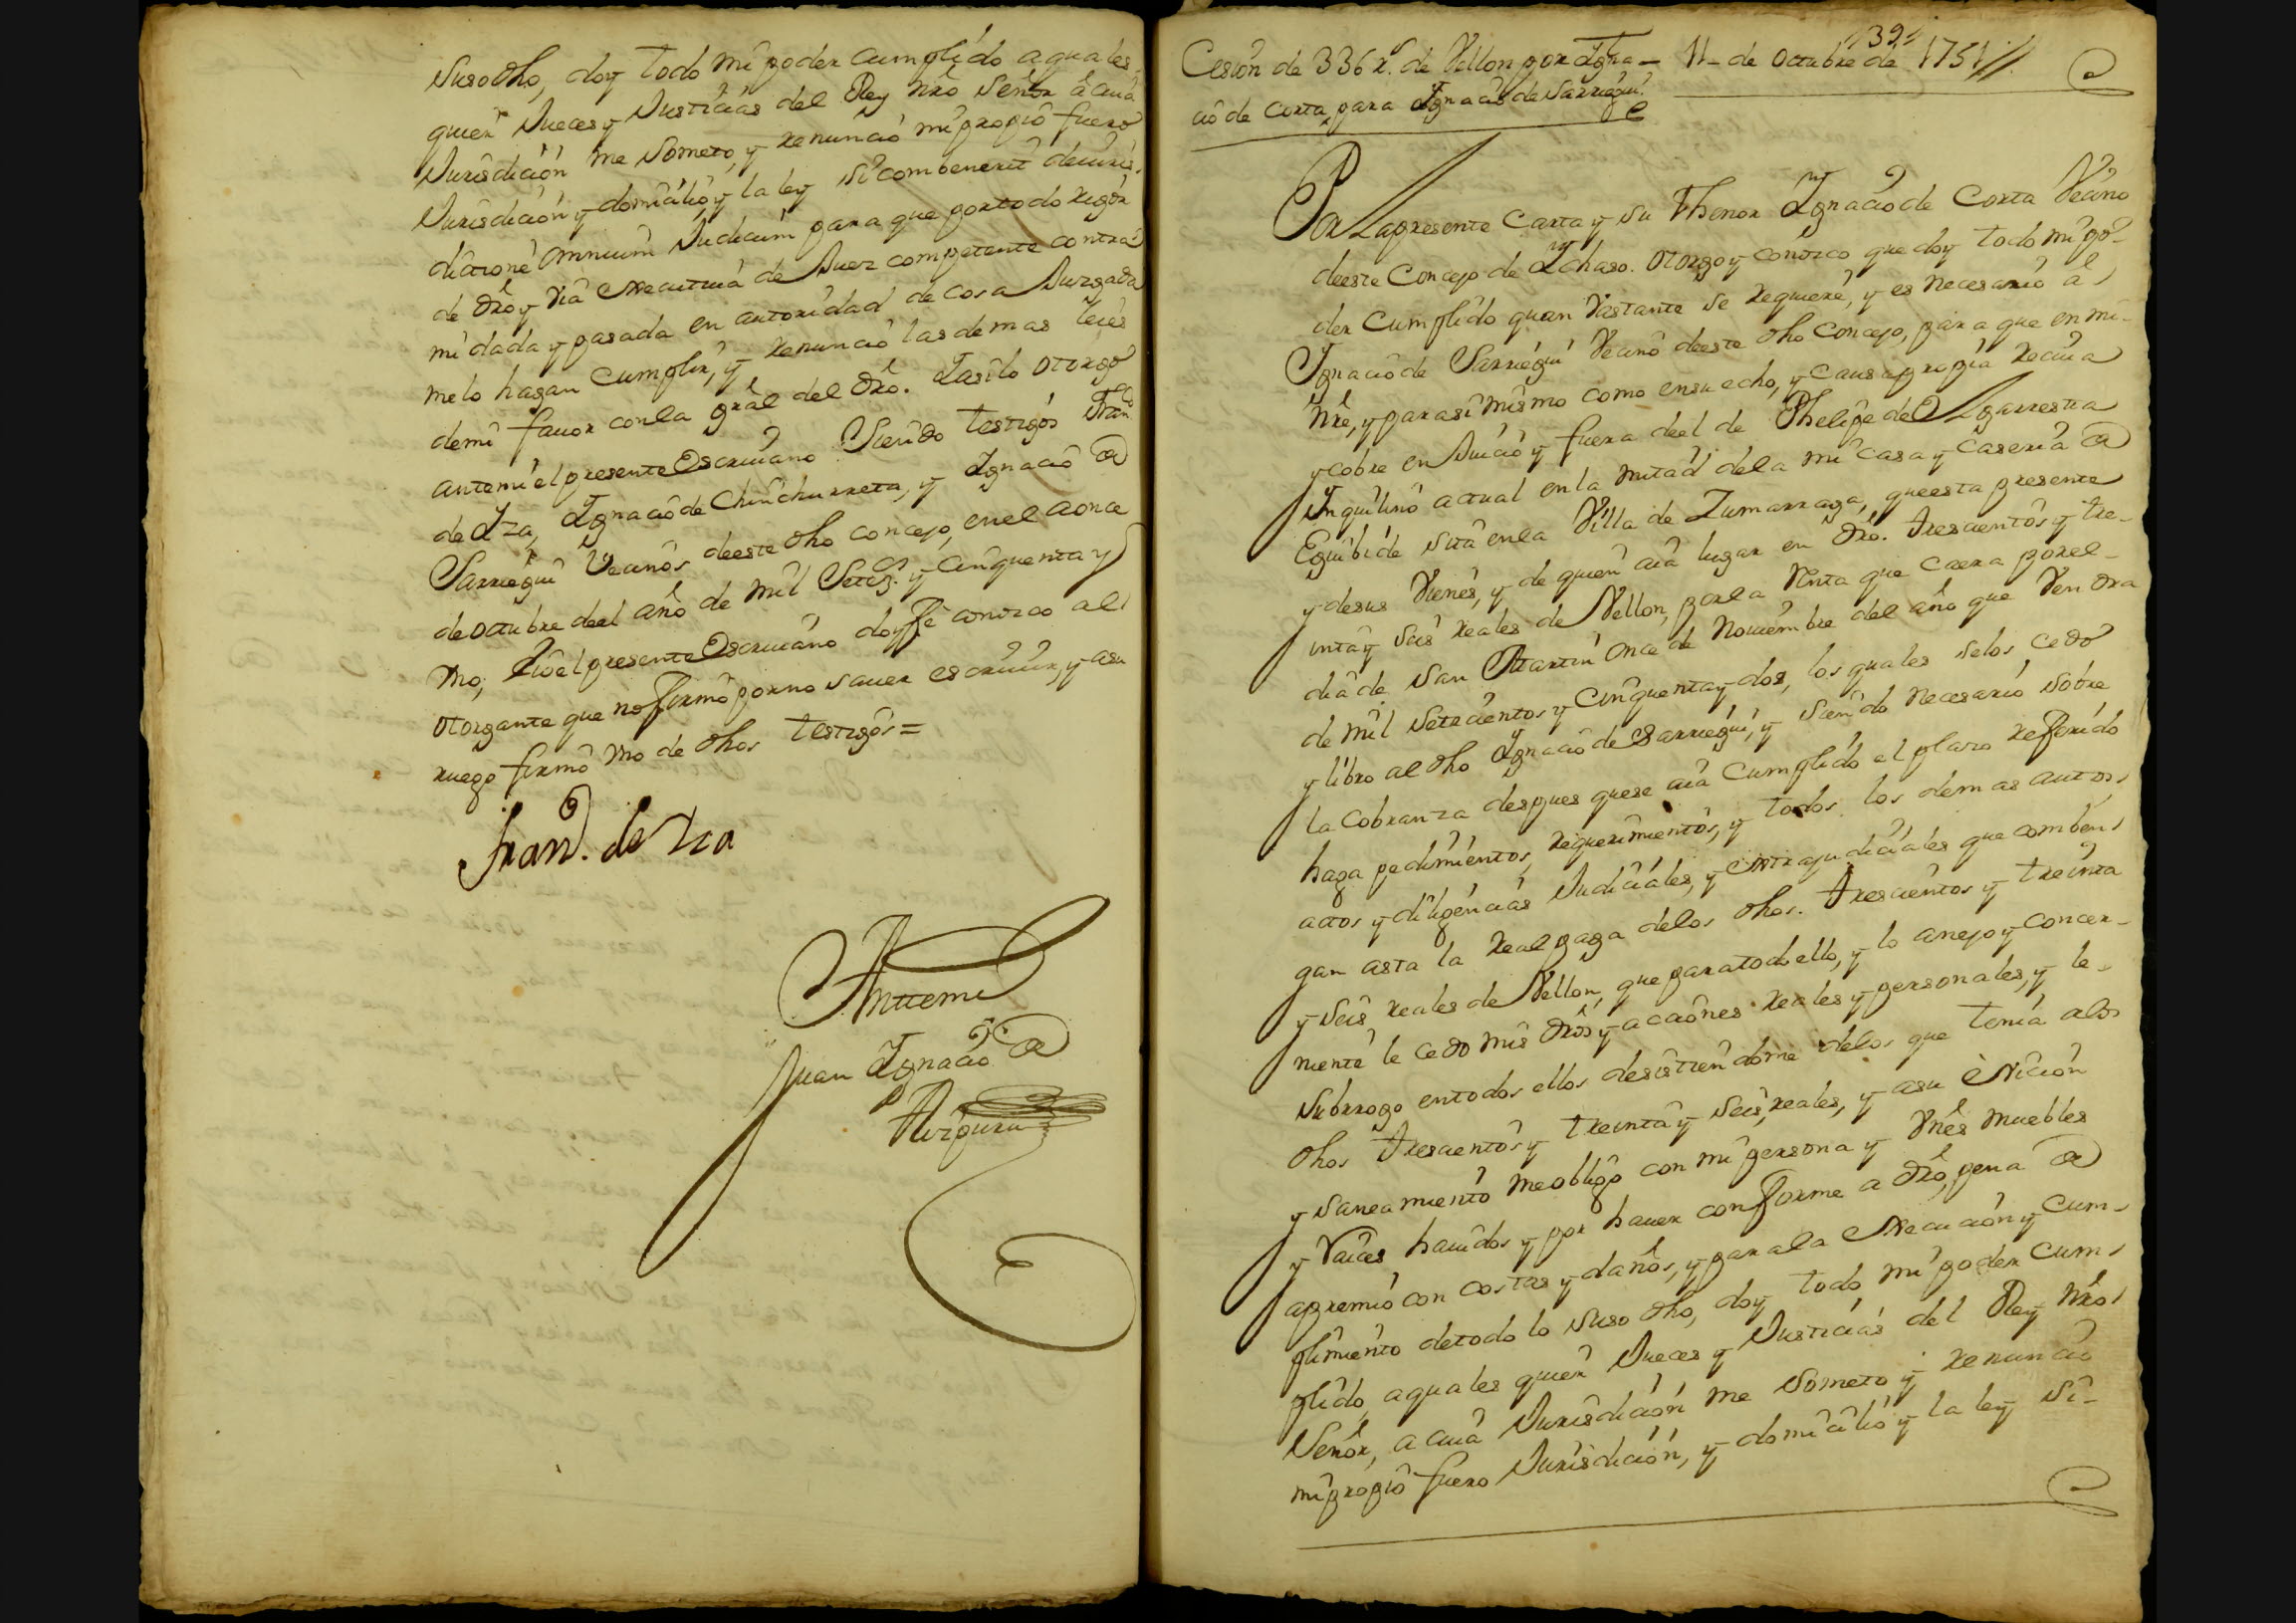 Susodho, doy todo mi poder cumplido a quales
quier Jueces y Justicias del Rey nro Señor â cuia
Jurisdicion me Someto, y renuncio mi propio fuero
Jurisdicion y domicilio, y la ley si combenerit de iuris
dictione omnium Judicum para que por todo rigor
de dro y via executiva de Juez competente contra
mi dada y pasada en autoridad de cosa Juzgada
me lo hagan cumplir, y renuncio las demas leies
de mi favor con la gral del dro. I asi lo otorgo
ante mi el presente Escrivano Siendo testigos Fran.co
de Iza, Ignacio de Chinchurreta, y Ignacio de
Sarriegui Vecinos de este dho concejo, en el a once
de octubre de el año de mil Setez.s y cinquenta y
Vno, Yo el presente Escrivano doy fe conozco al
otorgante que no firmô por no saver escrivir, y a su
ruego firmô vno de dhos testigos =
Fran.co de Iza
Antemi
Juan Ignacio de
Aizpuru
139
Cesion de 336 r.s de Vellon por Igna- 11- de Octubre de 1751 //
cio de Corta, para Ignacio de Sarriegui
Por La presente Carta y su thenor Ignacio de Corta Vecino
de este Concejo de Ichaso. Otorgo y conozco que doy todo mi po-
der cumplido quan Vastante se requiere, y es necesario â
Ignacio de Sarriegui Vecino de este dho Concejo, para que en mi
nre, y para si mismo como en su echo, y causa propia reciva
y cobre en Juicio y fuera de el de Phelipe de Algarrestra
Ynquilino actual en la mitad de la mi casa y caseria de
Eguibide sita en la Villa de Zumarraga, que esta presente
y de sus Vienes, y de quien aia lugar en dro. trescientos y tre-
inta y seis reales de Vellon, por la Renta que caera por el
dia de San Martin once de Noviembre del año que Vendra
de mil setecientos y cinquenta y dos, los quales se los cedo
y libro al dho Ignacio de Sarriegui, y siendo necesario sobre
la cobranza despues que se aia cumplido el plazo refferido
haga pedimientos, requerimientos, y todos los demas autos,
actos y diligencias Judiciales, y extrajudiciales que comben
gan asta la real paga de los dhos. trescientos y treinta
y seis reales de Vellon, que para todo ello, y lo anejo y concer-
niente le cedo mis dros y acciones reales y personales, y le
subrrogo en todos ellos desistiendome de los que tenia a los
dhos trescientos y treinta y seis reales, y a su eviccion
y saneamiento me obligo con mi persona y Vnes muebles
y raices havidos y por haver conforme a dro, pena de
apremio con costas y daños, y para la execucion y cum-
plimiento de todo lo suso dho, doy todo mi poder cum
plido a quales quier Jueces y Justicias del Rey nro
Señor, a cuia Jurisdicion me someto y renuncio
mi propio fuero Jurisdicion, y domicilio y la ley si-